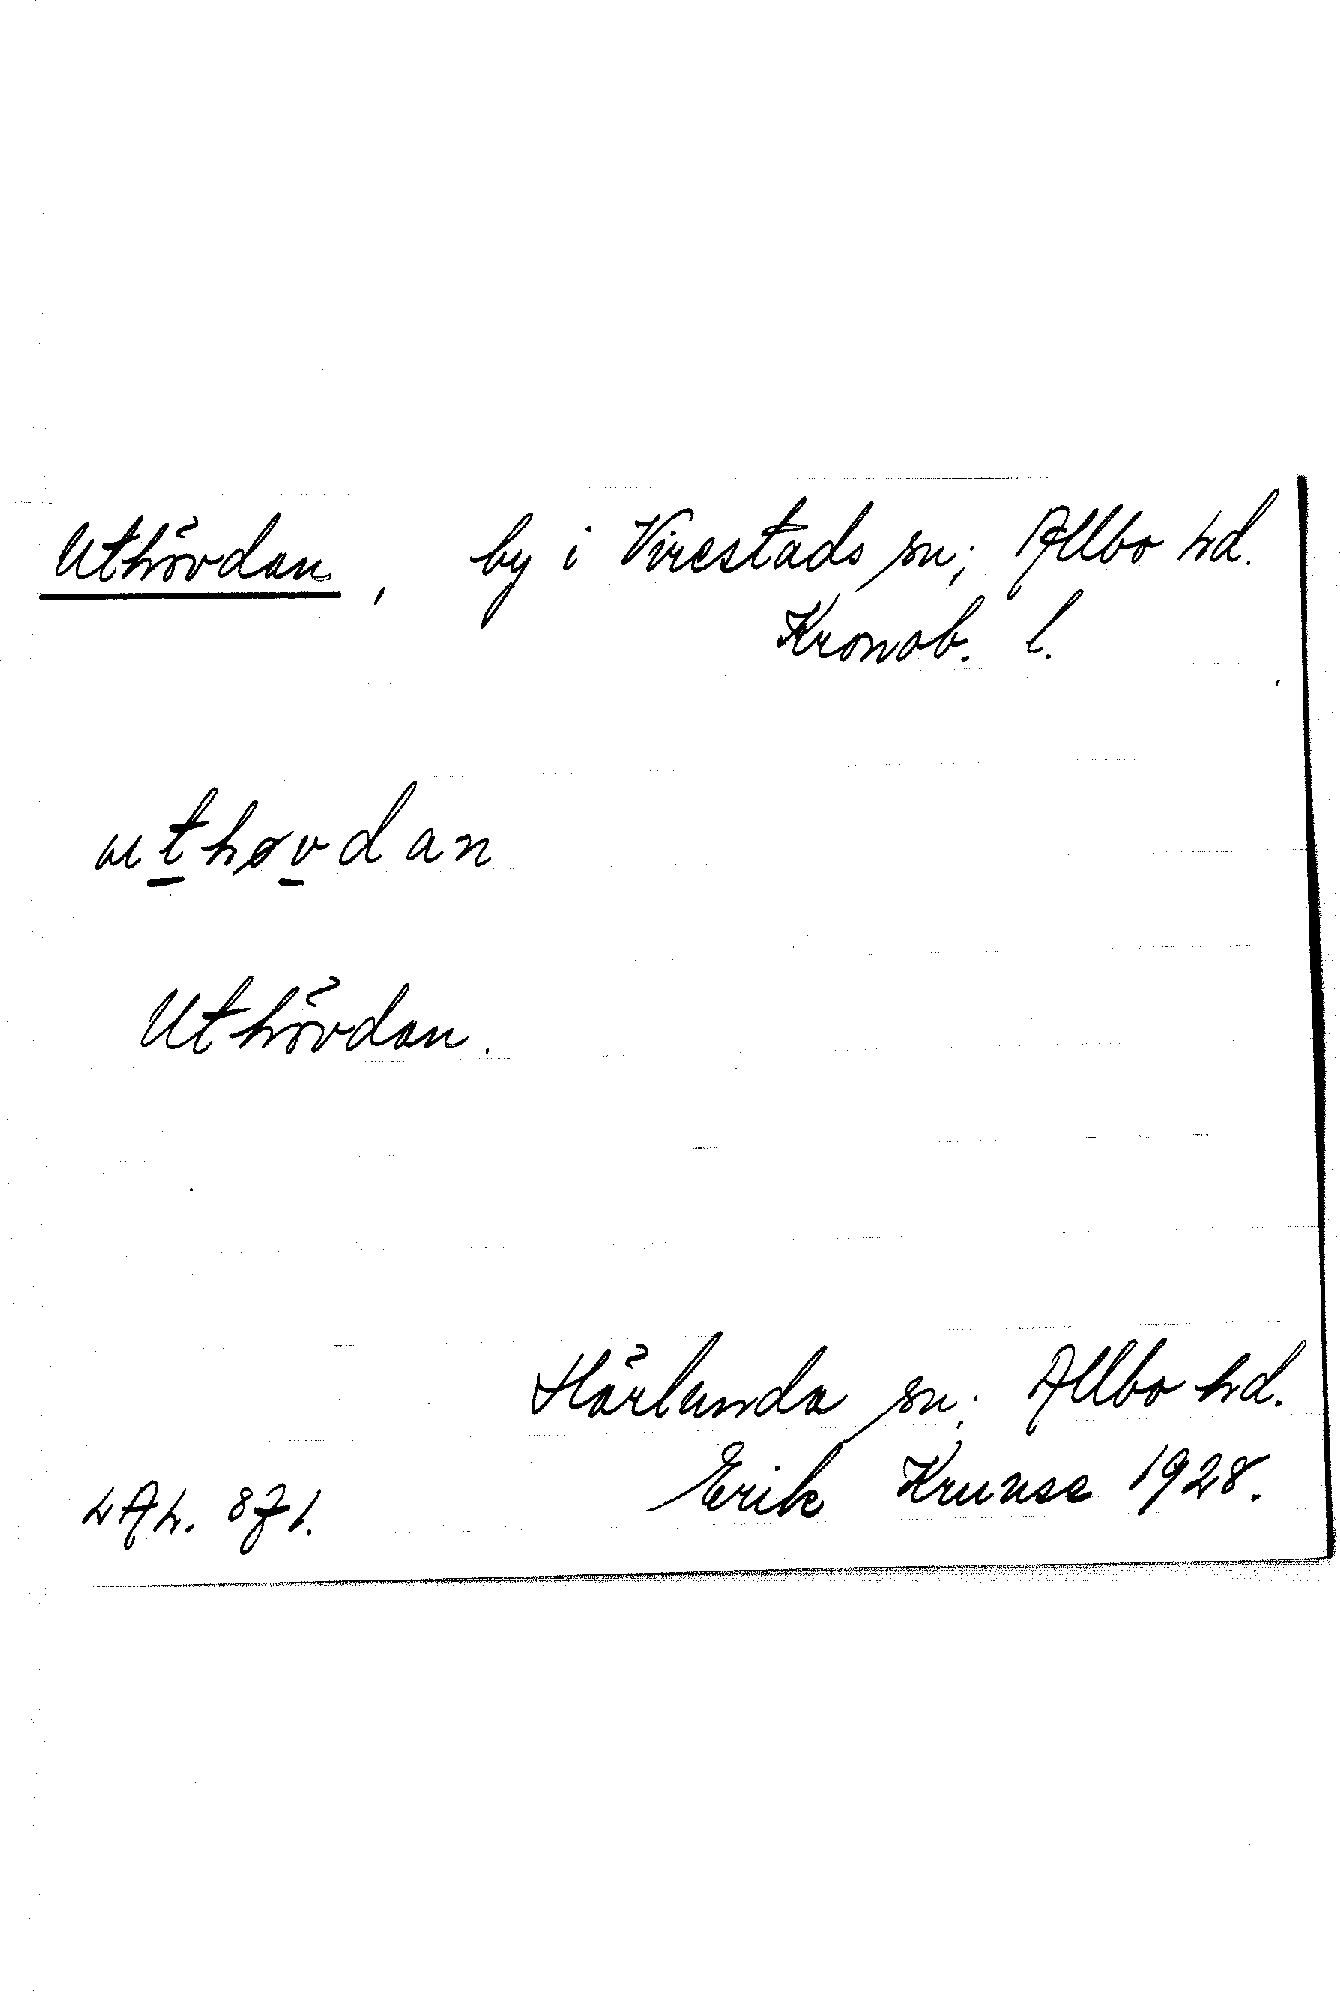 Uthövdan, by i Virestads sn; Allbo hd.
Kronob. l.
uthøvdan
Uthövdan.
Härlunda sn; Allbo hd.
Erik Kruuse 1928.
LAL. 871.